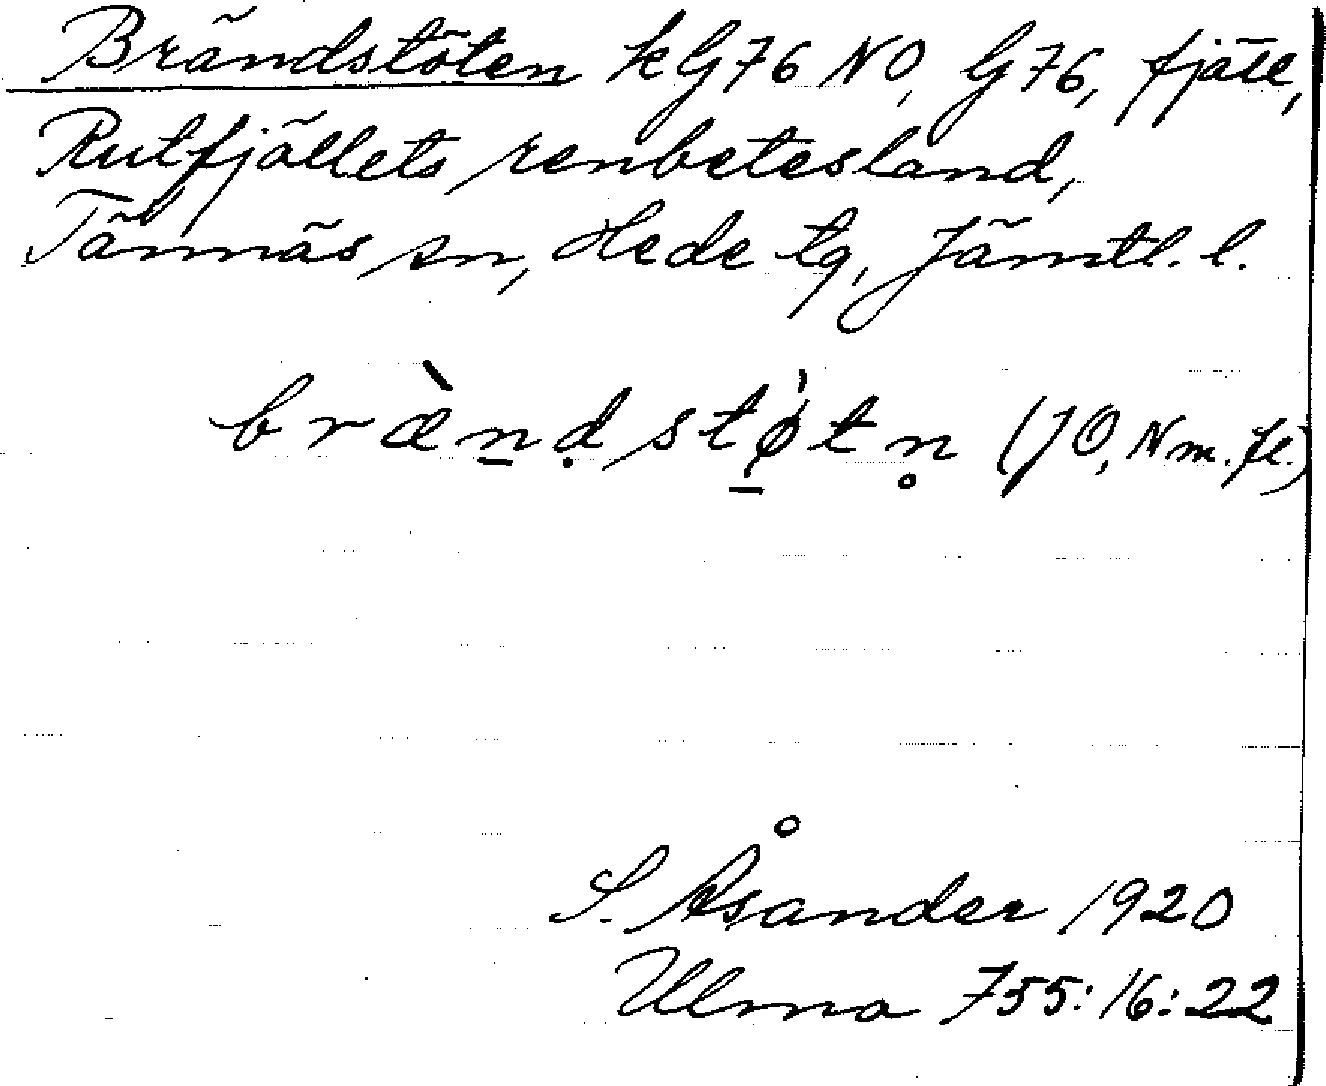 Brändstöten kG76 NO, G76, fjäll,
Rutfjällets renbetesland,
Tännäs sn, Hede tg, Jämtl. l.
bræ̀n̠ḍstø̠̍tn̥ (JO, N m. fl.)
S. Åsander 1920
Ulma 755:16:22